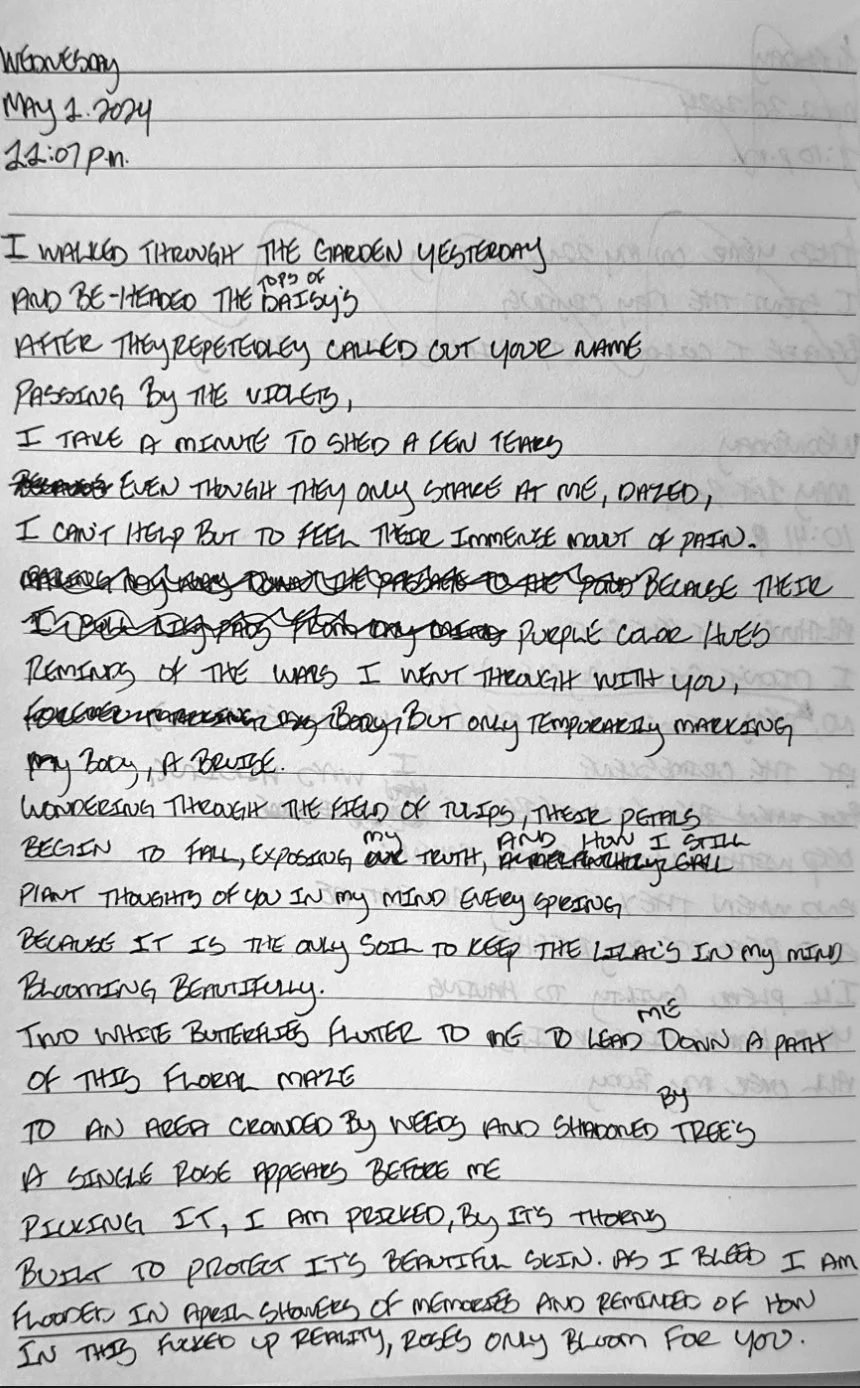 WEDNESDAY
MAY 1. 2024
11:07 P.M.
I WALKED THROUGH THE GARDEN YESTERDAY
AND BE-HEADED THE TOPS OF DAISY'S
AFTER THEY REPETEDLEY CALLED OUT YOUR NAME
PASSING BY THE VIOLETS,
I TAKE A MINUTE TO SHED A FEW TEARS
BECAUSE EVEN THOUGH THEY ONLY STARE AT ME, DAZED,
I CAN'T HELP BUT TO FEEL THEIR IMMENSE MOUNT OF PAIN.
BECAUSE THEIR
PURPLE COLOR HUES
REMINDS OF THE WARS I WENT THROUGH WITH YOU,
FOREVER MARKING MY BODY, BUT ONLY TEMPORARILY MARKING
MY BODY, A BRUISE.
WONDERING THROUGH THE FIELD OF TULIPS, THEIR PETALS
BEGIN TO FALL, EXPOSING MY OUR TRUTH, AND HOW I STILL
PLANT THOUGHTS OF YOU IN MY MIND EVERY SPRING
BECAUSE IT IS THE ONLY SOIL TO KEEP THE LILAC'S IN MY MIND
BLOOMING BEAUTIFULLY.
TWO WHITE BUTTERFLIES FLUTTER TO ME TO LEAD ME DOWN A PATH
OF THIS FLORAL MAZE
TO AN AREA CROWDED BY WEEDS AND SHADOWED BY TREE'S
A SINGLE ROSE APPEARS BEFORE ME
PICKING IT, I AM PRICKED, BY IT'S THORNS
BUILT TO PROTECT IT'S BEAUTIFUL SKIN. AS I BLEED I AM
FLOODED IN APRIL SHOWERS OF MEMORIES AND REMINDED OF HOW
IN THIS FUCKED UP REALITY, ROSES ONLY BLOOM FOR YOU.